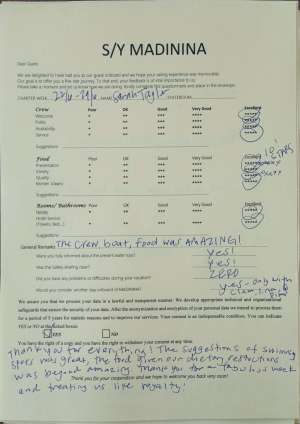 S/Y MADININA
Dear Guest,
We are delighted to have had you as our guest onboard and we hope your sailing experience was memorable.
Our goal is to offer you a five star journey. To that end, your feedback is of vital importance to us.
Please take a moment and let us know how we are doing. Kindly complete this questionnaire and place in the envelope.
CHARTER WEEK: NAME: Sarah Taylor
Crew Poor OK Good Very Good Excellent
Welcome * ** *** **** *****
Polite * ** *** **** *****
Availability * ** *** **** *****
Service * ** *** **** *****
Suggestions:
Food Poor OK Good Very Good Excellent
Presentation * ** *** **** *****
Variety * ** *** **** *****
Quality * ** *** **** *****
Kitchen (clean) * ** *** **** *****
Suggestions:
Rooms/ Bathrooms Poor OK Good Very Good Excellent
Neatly * ** *** **** *****
Hotel Service
(Towels, Bed...) * ** *** **** *****
Suggestions:
General Remarks The Crew, boat, food was AMAZING!
Were you fully informed about the onboard water use? Yes!
Was the Safety briefing clear? Yes!
Did you have any problems or difficulties during your vacation? ZERO
Would you consider another stay onboard S/Y MADININA? yes - only with
We assure you that we process your data in a lawful and transparent manner. We develop appropriate technical and organisational
safeguards that ensure the security of your data. After the anonymization and encryption of your personal data we intend to process them
for a period of 5 years for statistic reasons and to improve our services. Your consent is an indispensable condition. You can indicate
YES or NO at the defined boxes:
YES NO
You have the right of a copy and you have the right to withdraw your consent at any time.
Thank you for everything! The suggestions of swimming
stops was great, the food given our dietary restrictions
was beyond amazing. Thank you for a fabulous week
and treating us like royalty!
Thank you for your cooperation and we hope to welcome you back very soon!